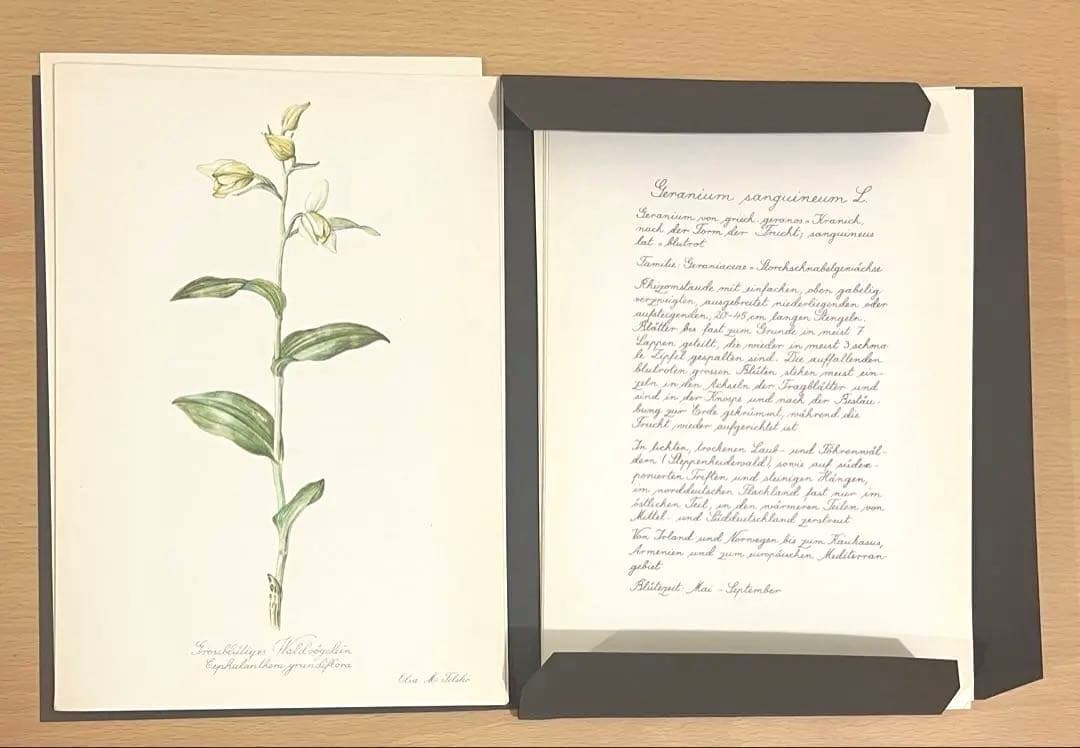 Grossblütiges Waldvögelein
Cephalanthera grandiflora
Elsa M. Felsko
Geranium sanguineum L.
Geranium von griech. geranos = Kranich,
nach der Form der Frucht; sanguineus
lat. = blutrot
Familie: Geraniaceae = Storchschnabelgewächse
Rhizomstaude mit einfachen, oben gabelig
verzweigten, ausgebreitet niederliegenden oder
aufsteigenden, 20-45 cm langen Stengeln.
Blätter bis fast zum Grunde in meist 7
Lappen geteilt, die wieder in meist 3 schma-
le Zipfel gespalten sind. Die auffallenden
blutroten grossen Blüten stehen meist ein-
zeln in den Achseln der Tragblätter und
sind in der Knospe und nach der Bestäu-
bung zur Erde gekrümmt, während die
Frucht wieder aufgerichtet ist
In lichten, trockenen Laub- und Föhrenwäl-
dern (Steppenheidewald) sowie auf südex-
ponierten Triften und steinigen Hängen,
im norddeutschen Flachland fast nur im
östlichen Teil, in den wärmeren Teilen von
Mittel- und Süddeutschland zerstreut
Von Irland und Norwegen bis zum Kaukasus,
Armenien und zum europäischen Mediterran-
gebiet
Blütezeit: Mai - September